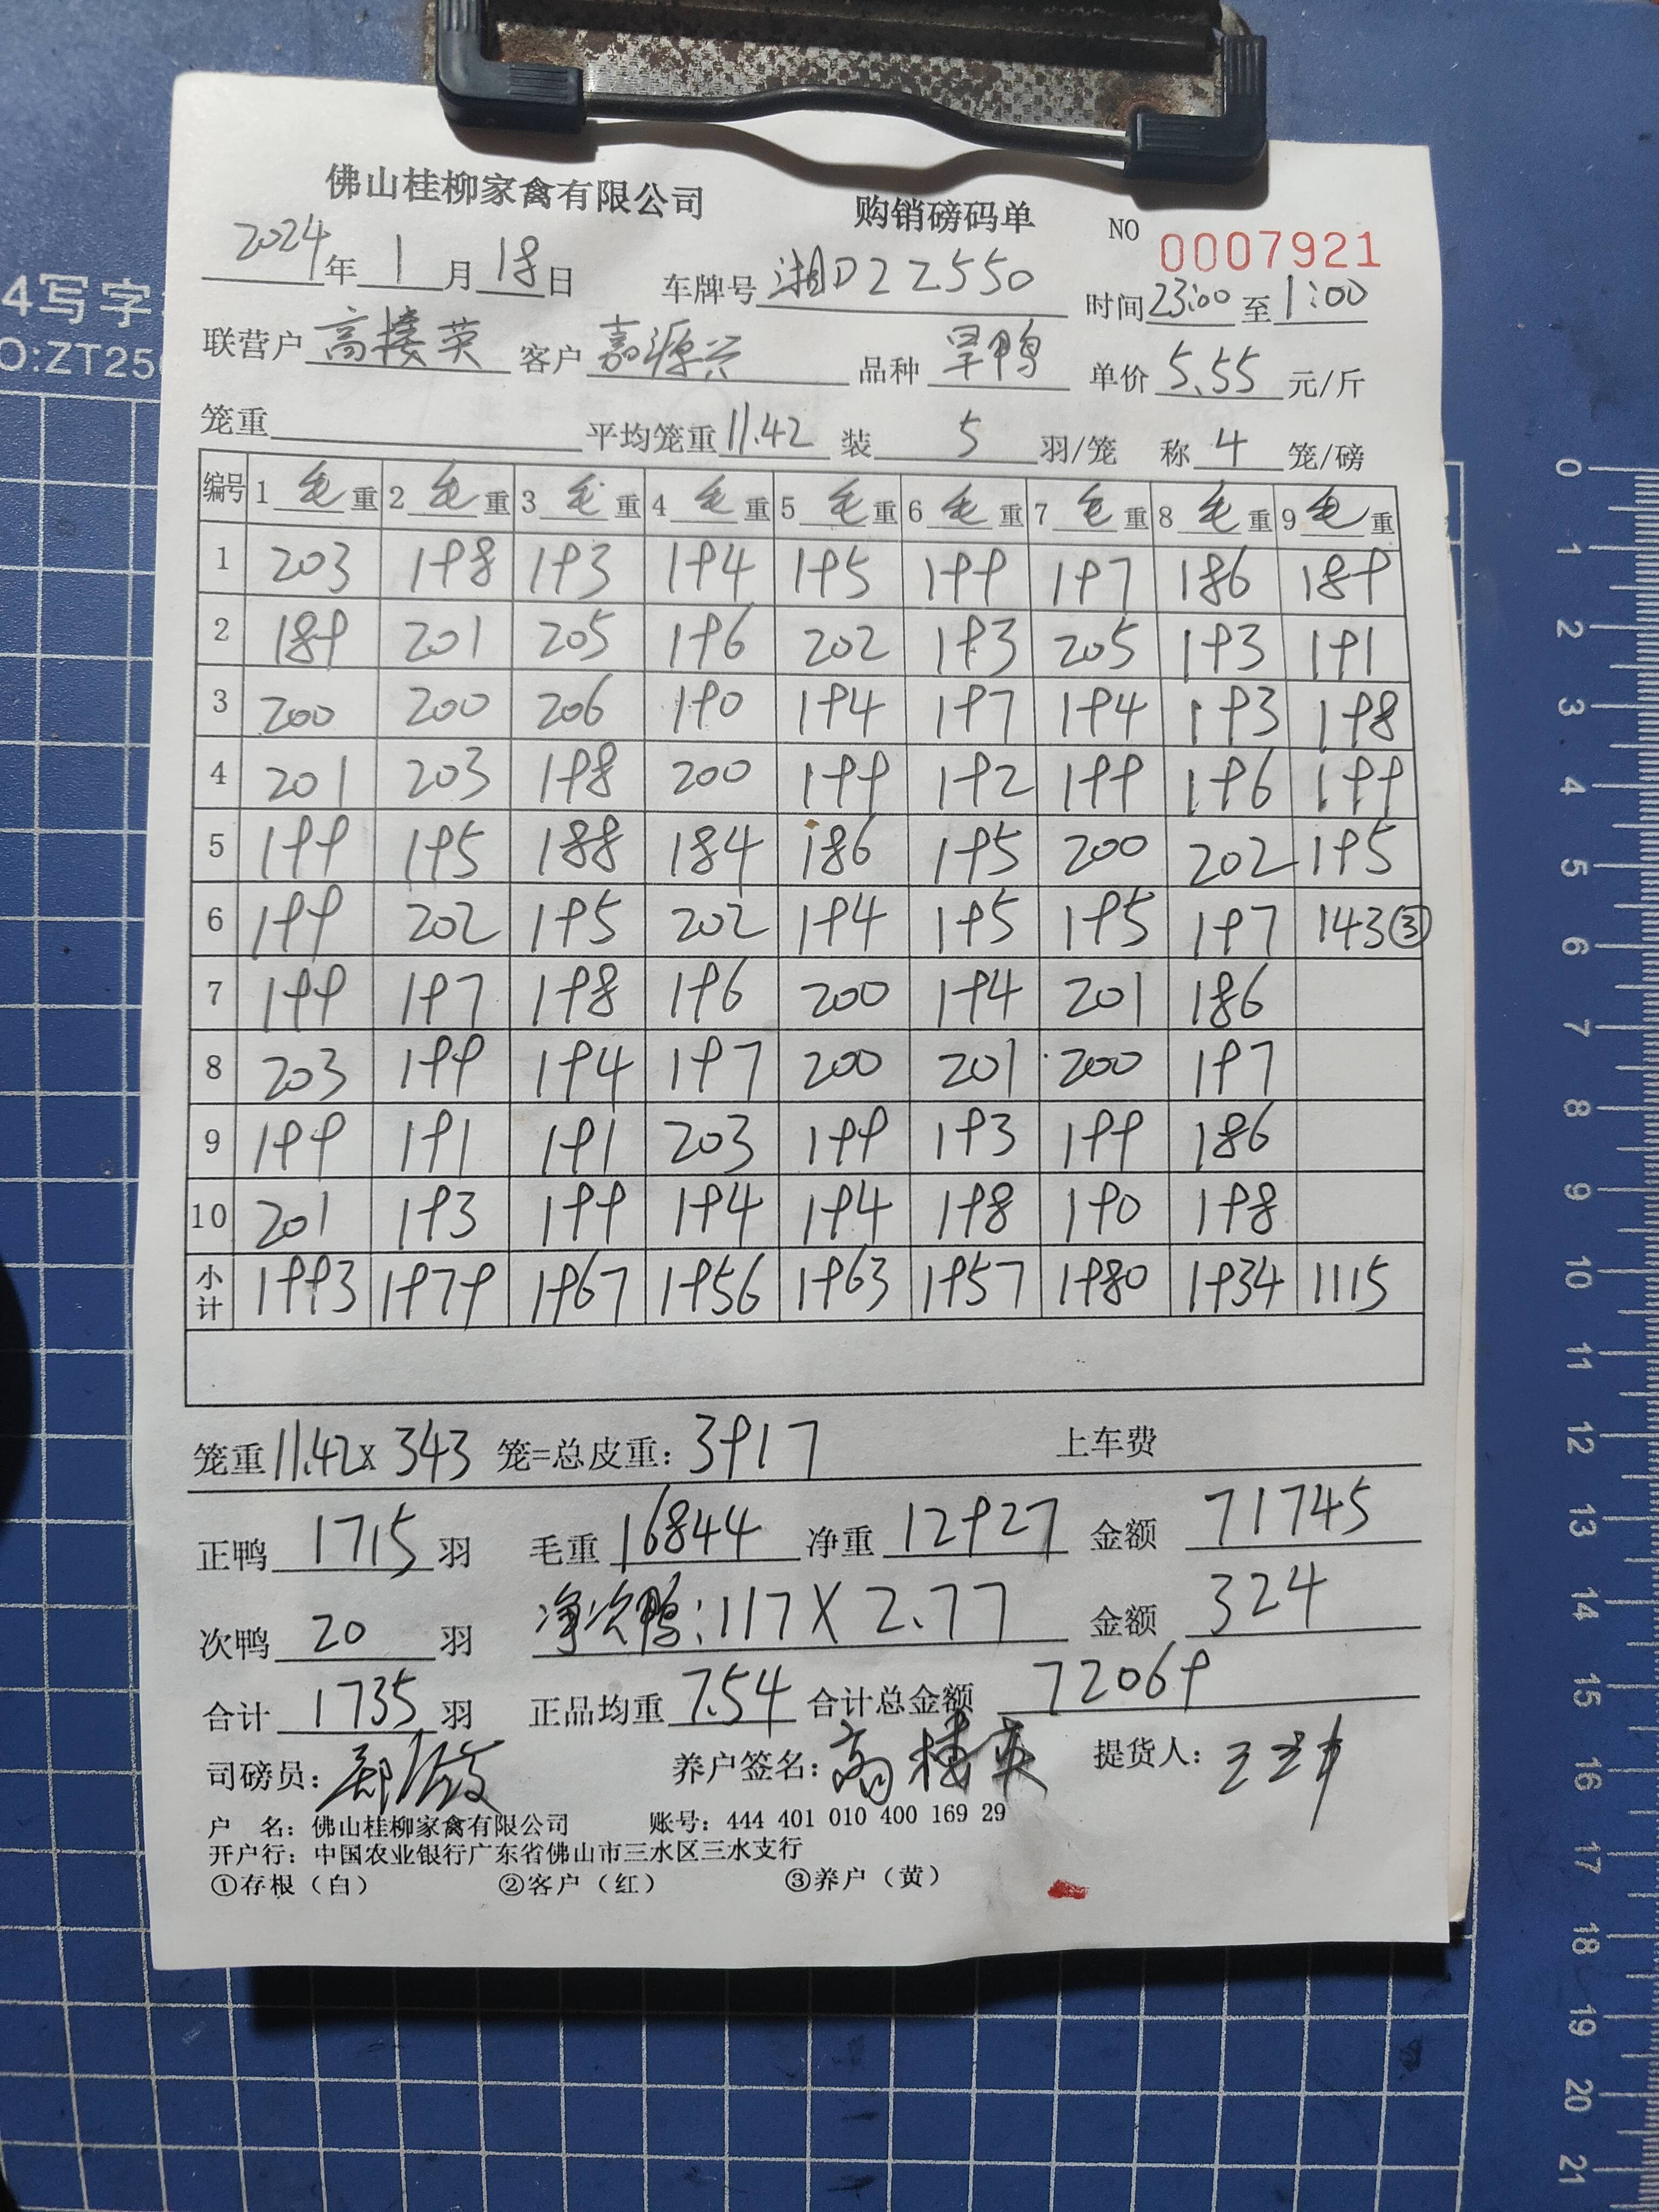 佛山桂柳家禽有限公司 购销磅码单 NO 0007921
2024年1月18日 车牌号 湘D2Z550 时间23:00至1:00
联营户 高接英 客户 嘉源兴 品种 旱鸭 单价5.55元/斤
笼重 平均笼重11.42 装5羽/笼 称4笼/磅
编号 1毛重 2毛重 3毛重 4毛重 5毛重 6毛重 7毛重 8毛重 9毛重
1 203 198 193 194 195 199 197 186 189
2 189 201 205 196 202 193 205 193 191
3 200 200 206 190 194 197 194 193 198
4 201 203 198 200 199 192 199 196 199
5 199 195 188 184 186 195 200 202 195
6 199 202 195 202 194 195 195 197 143③
7 199 197 198 196 200 194 201 186
8 203 199 194 197 200 201 200 197
9 199 191 191 203 199 193 199 186
10 201 193 199 194 194 198 190 198
小计 1993 1979 1967 1956 1963 1957 1980 1934 1115
笼重11.42X343 笼=总皮重：3917 上车费
正鸭1715羽 毛重16844 净重12927 金额71745
次鸭20羽 净次鸭：117X2.77 金额324
合计1735羽 正品均重7.54 合计总金额72069
司磅员： 养户签名： 提货人：
户 名：佛山桂柳家禽有限公司 账号：444 401 010 400 169 29
开户行：中国农业银行广东省佛山市三水区三水支行
①存根（白） ②客户（红） ③养户（黄）
4写字
O:ZT25
0
1
2
3
4
5
6
7
8
9
10
11
12
13
14
15
16
17
18
19
20
21